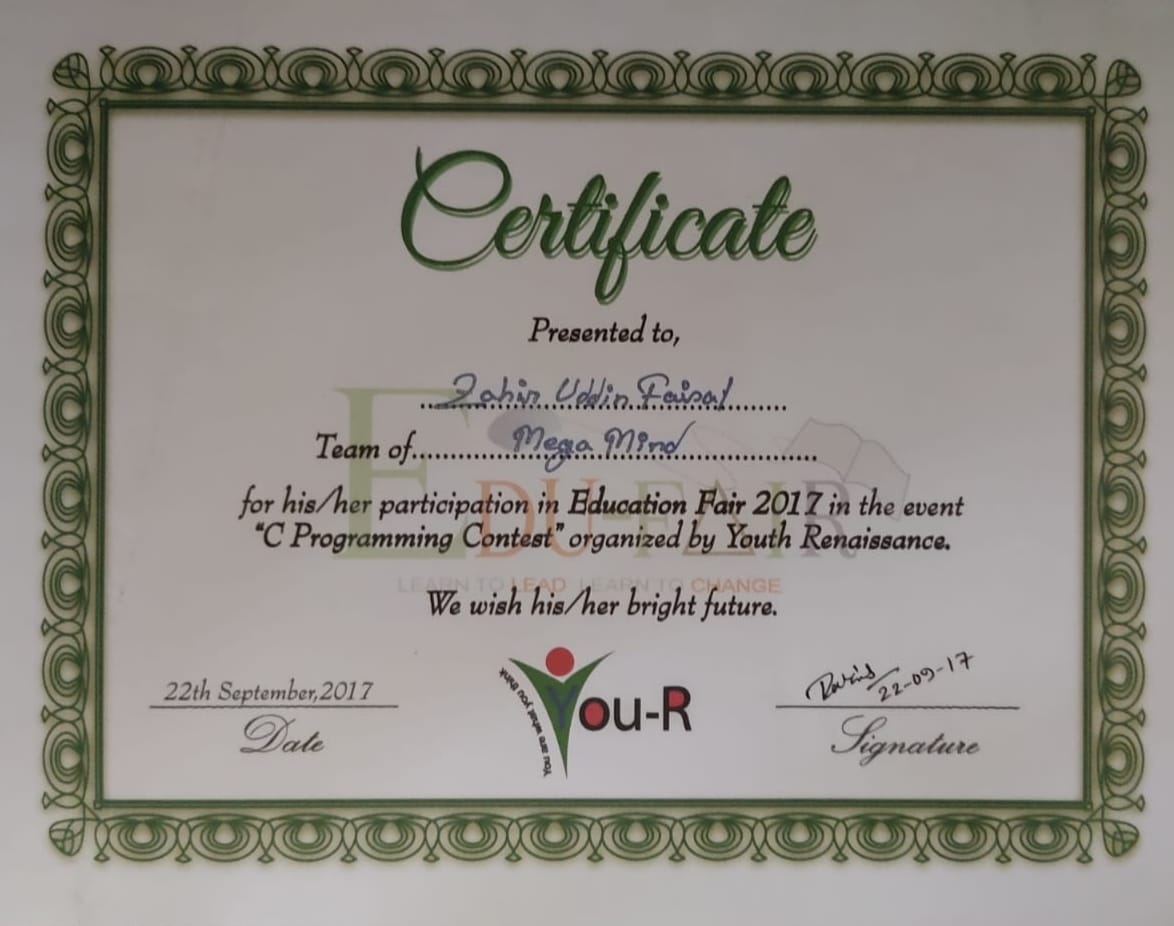 Certificate
Presented to,
Zahir Uddin Faisal
Team of Mega Mind
for his/her participation in Education Fair 2017 in the event
“C Programming Contest” organized by Youth Renaissance.
EDU-FAIR
LEARN TO LEAD LEARN TO CHANGE
We wish his/her bright future.
22th September,2017
Date
You are what you think
You-R
22-09-17
Signature